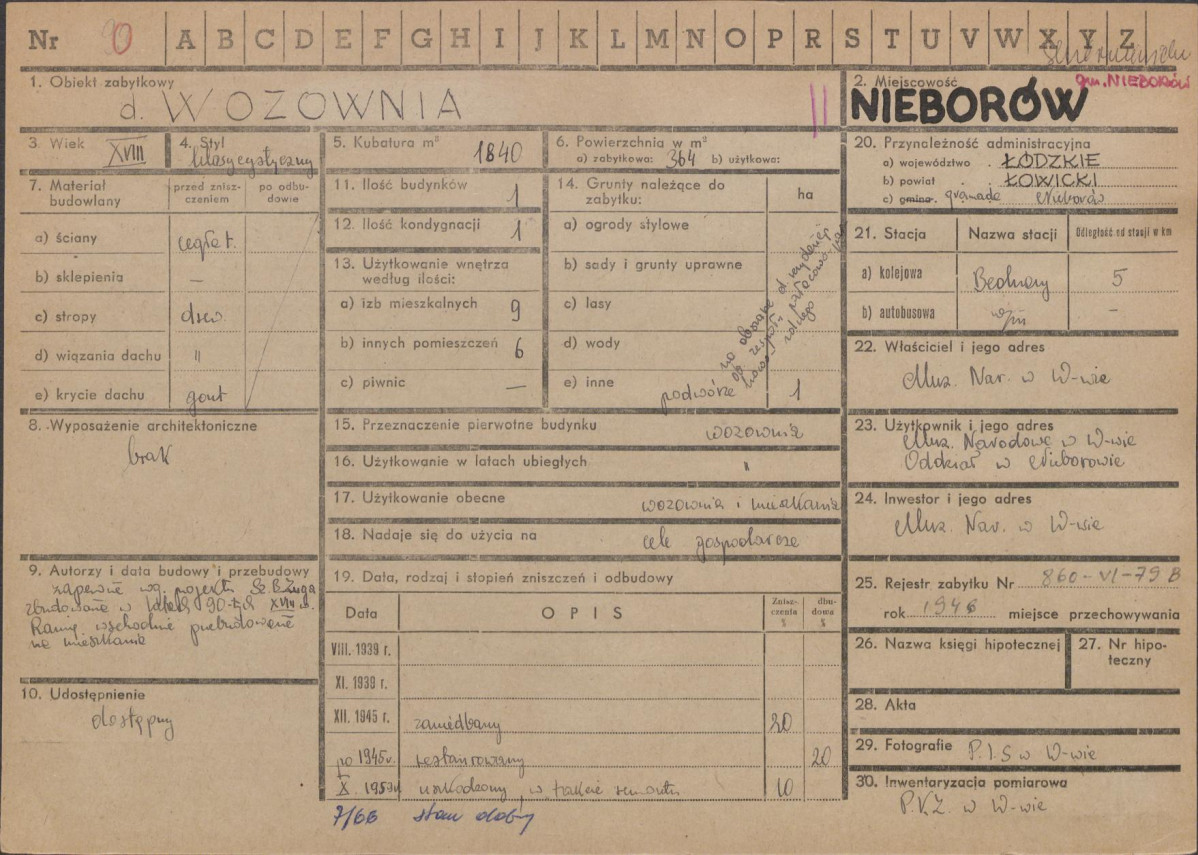 Nr A B C D E F G H I J K L M N O P R S T U V W X Y Z
1. Obiekt zabytkowy
d. WOZOWNIA
2. Miejscowość
gm. NIEBORÓW
NIEBORÓW
3. Wiek XVIII
4. Styl klasycystyczny
5. Kubatura m³ 1840
6. Powierzchnia w m²
a) zabytkowa: 364 b) użytkowa:
7. Materiał budowlany
przed zniszczeniem
po odbudowie
a) ściany cegła t.
b) sklepienia —
c) stropy drew.
d) wiązania dachu "
e) krycie dachu gont
8. Wyposażenie architektoniczne
brak
9. Autorzy i data budowy i przebudowy
zapewne wg. projektu Sz. B. Zuga
zbudowane w latach 90-tych XVIII w.
Ramię wschodnie przebudowane
na mieszkania
10. Udostępnienie
dostępny
11. Ilość budynków 1
12. Ilość kondygnacji 1
13. Użytkowanie wnętrza
według ilości:
a) izb mieszkalnych 9
b) innych pomieszczeń 6
c) piwnic —
14. Grunty należące do
zabytku:
ha
a) ogrody stylowe
b) sady i grunty uprawne
c) lasy
d) wody
e) inne podwórze 1
15. Przeznaczenie pierwotne budynku wozownia
16. Użytkowanie w latach ubiegłych "
17. Użytkowanie obecne wozownia i mieszkania
18. Nadaje się do użycia na cele gospodarcze
19. Data, rodzaj i stopień zniszczeń i odbudowy
Data OPIS Zniszczenia % dbudowa %
VIII. 1939 r.
XI. 1939 r.
XII. 1945 r. zaniedbany 20
po 1945 r. restaurowany 20
X. 1959 r. uszkodzony, w trakcie remontu 10
7/66 stan dobry
20. Przynależność administracyjna
a) województwo ŁÓDZKIE
b) powiat ŁOWICKI
c) gmina. gromada Nieborów
21. Stacja Nazwa stacji Odległość od stacji w km
a) kolejowa Bednary 5
b) autobusowa —
22. Właściciel i jego adres
Muz. Nar. w W-wie
23. Użytkownik i jego adres
Muz. Narodowe w W-wie
Oddział w Nieborowie
24. Inwestor i jego adres
Muz. Nar. w W-wie
25. Rejestr zabytku Nr 860-VI-79 B
rok 1946 miejsce przechowywania
26. Nazwa księgi hipotecznej
27. Nr hipoteczny
28. Akta
29. Fotografie P.I.S w W-wie
30. Inwentaryzacja pomiarowa
P.K.Z. w W-wie